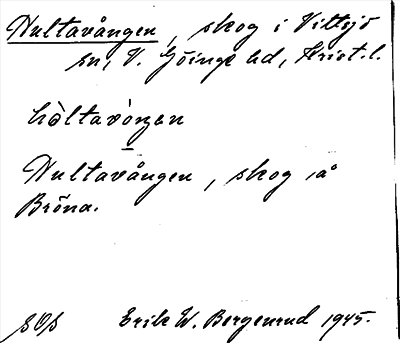 Hultavången, skog i Vittsjö
sn, V. Göinge hd, Krist. l.
hòltavòngen
Hultavången, skog å
Bröna.
SOS Erik W. Bergenrud 1945.